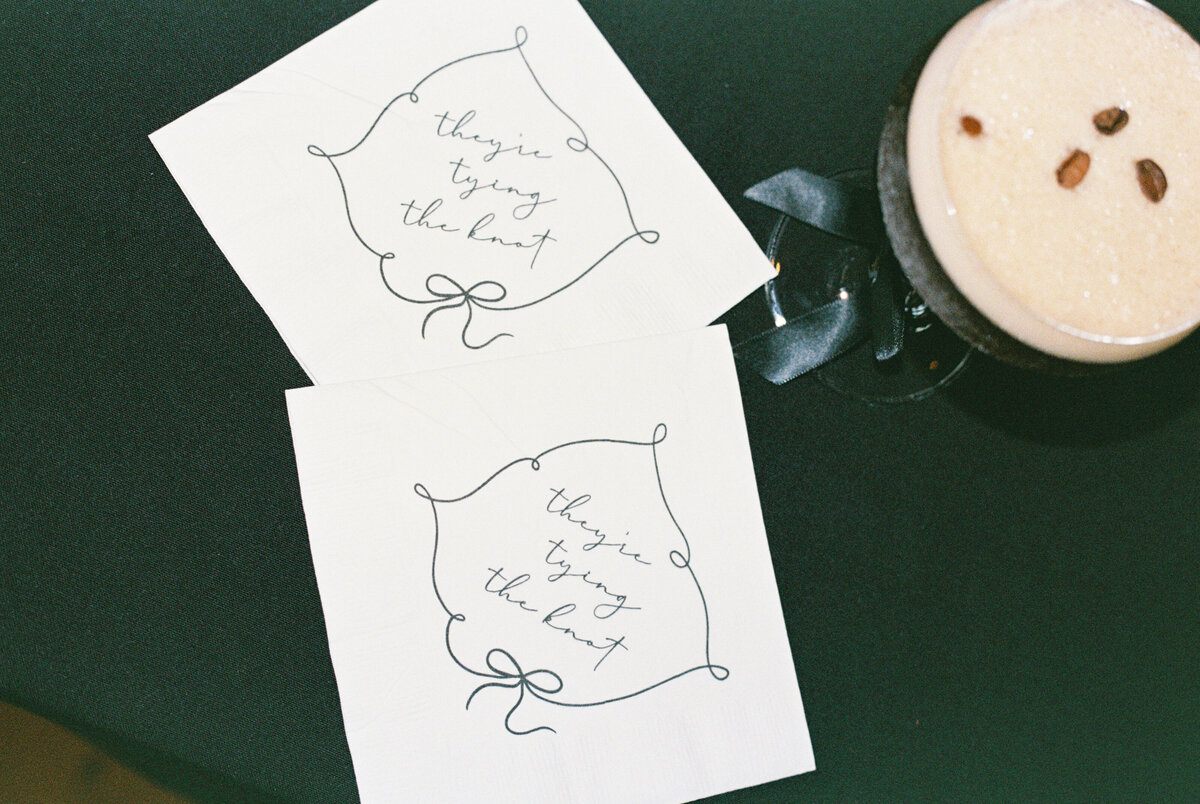 they're
tying
the knot
they're
tying
the knot